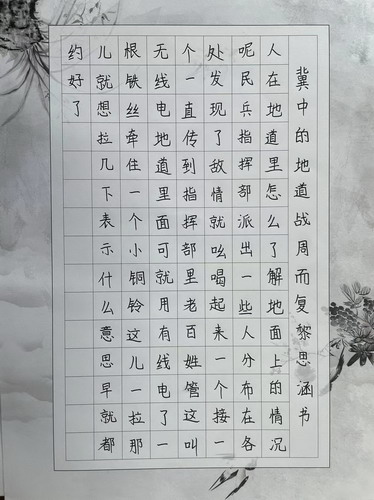 冀中的地道战周而复黎思涵书
人在地道里怎么了解地面上的情况
呢民兵指挥部派出一些人分布在各
处发现了敌情就吆喝起来一个接一
个一直传到指挥部里老百姓管这叫
无线电地道里面可就用有线电了一
根铁丝牵住一个小铜铃这儿一拉那
儿就想拉几下表示什么意思早就都
约好了